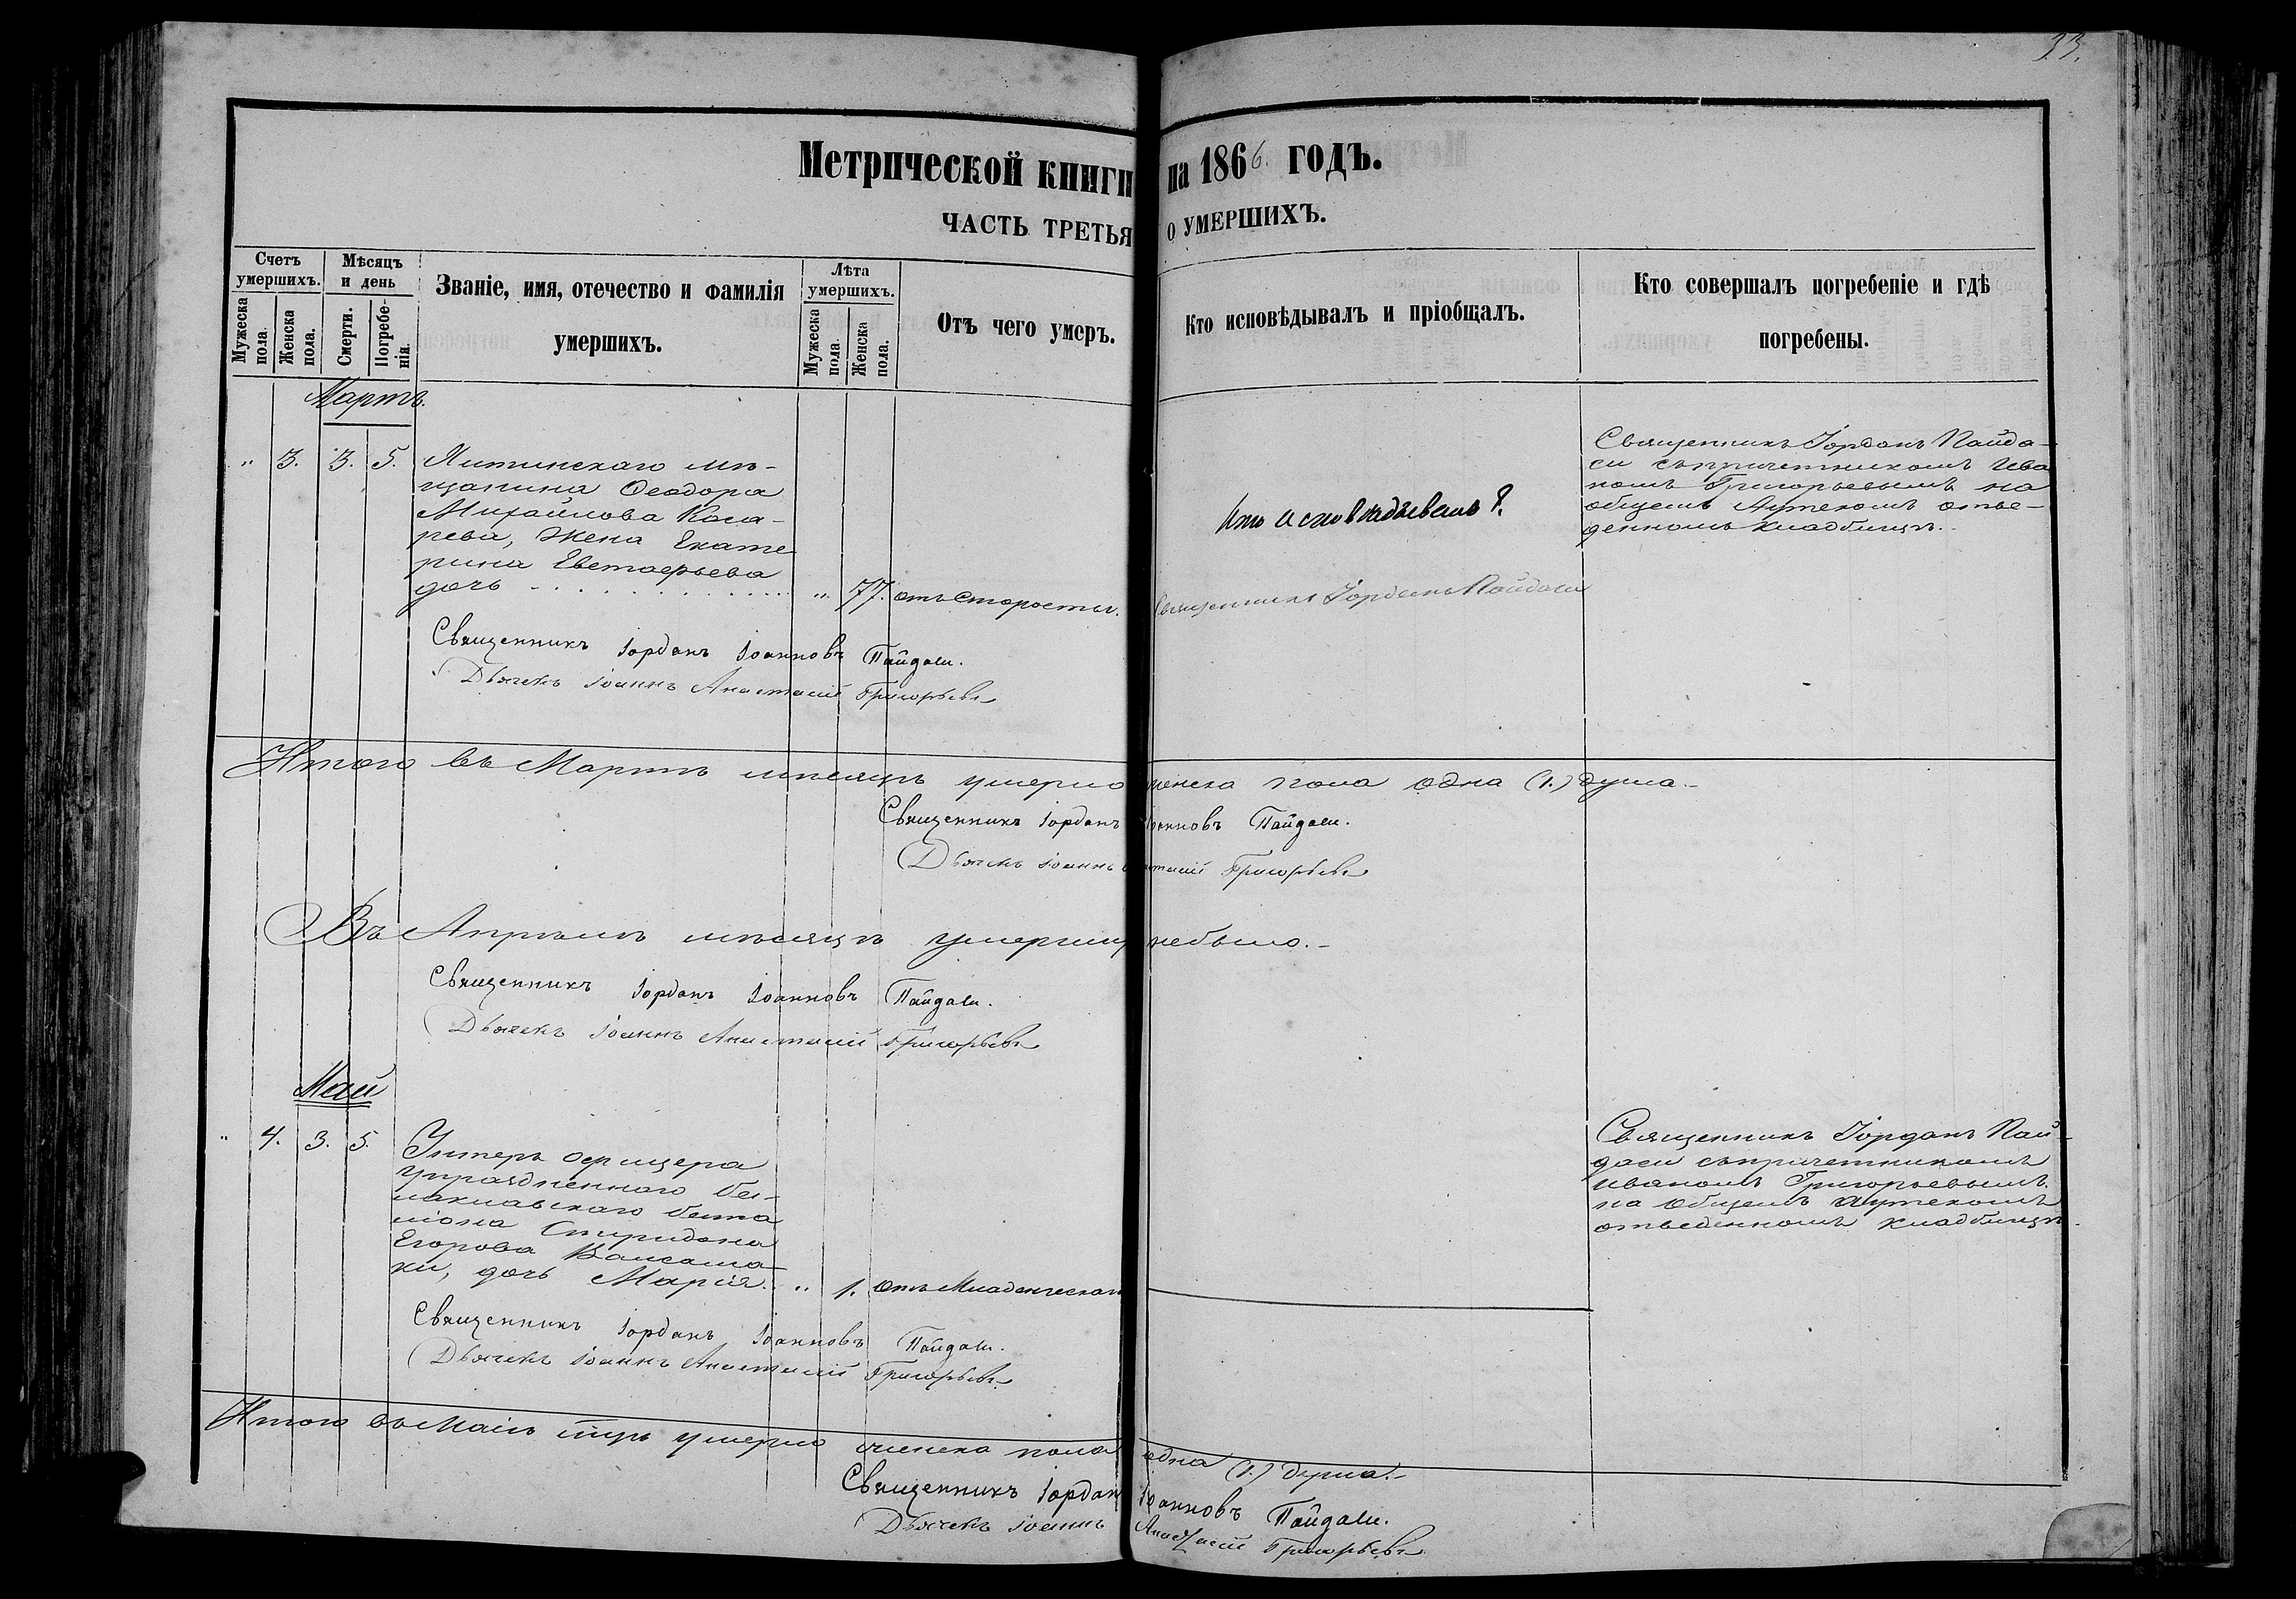 33.
Метрической книги на 1866. годъ.
ЧАСТЬ ТРЕТЬЯ о умершихъ.
Счетъ умершихъ.
Мужеска пола.
Женска пола.
Мѣсяцъ и день
Смерти.
Погребенія.
Званіе, имя, отечество и фамилія
умершихъ.
Лѣта умершихъ.
Мужеска пола.
Женска пола.
Отъ чего умеръ.
Кто исповѣдывалъ и пріобщалъ.
Кто совершалъ погребеніе и гдѣ
погребены.
Мартъ.
" 3. 3. 5. Ялтинскаго мѣ-
щанина Ѳеодора
Михайлова Коса-
рева, Жена Екате
рина Евстафьева
дочь " 77. отъ Старости.
Кто исповѣдывалъ?
Священникъ Іорданъ Пайдаси
Священникъ Іорданъ Пайда-
си съ причетникомъ Ива
номъ Григорьевымъ на
общемъ Аутскомъ отве-
денномъ кладбищѣ.
Священникъ Іорданъ Іоанновъ Пайдаси.
Дьячекъ Іоаннъ Анастасій Григорьевъ
Итого въ Мартѣ мѣсяцѣ умерло женска пола одна (1.) душа.-
Священникъ Іорданъ Іоанновъ Пайдаси.
Дьячекъ Іоаннъ Анастасій Григорьевъ
Въ Апрѣлѣ мѣсяцѣ умершихъ небыло.-
Священникъ Іорданъ Іоанновъ Пайдаси.
Дьячекъ Іоаннъ Анастасій Григорьевъ
Май
" 4. 3. 5. Унтеръ офицера
упраздненнаго Ба-
лаклавскаго бата
ліона Спиридона
Егорова Калсама-
ки, дочь Марія. " 1. отъ Младенческой
Священникъ Іорданъ Пай-
даси съ причетникомъ
Иваномъ Григорьевымъ.
на общемъ аутскомъ
отведенномъ кладбищѣ.
Священникъ Іорданъ Іоанновъ Пайдаси.
Дьячекъ Іоаннъ Анастасій Григорьевъ
Итого въ Маіѣ умерло женска пола одна (1.) душа.-
Священникъ Іорданъ Іоанновъ Пайдаси.
Дьячекъ Іоаннъ Анастасій Григорьевъ